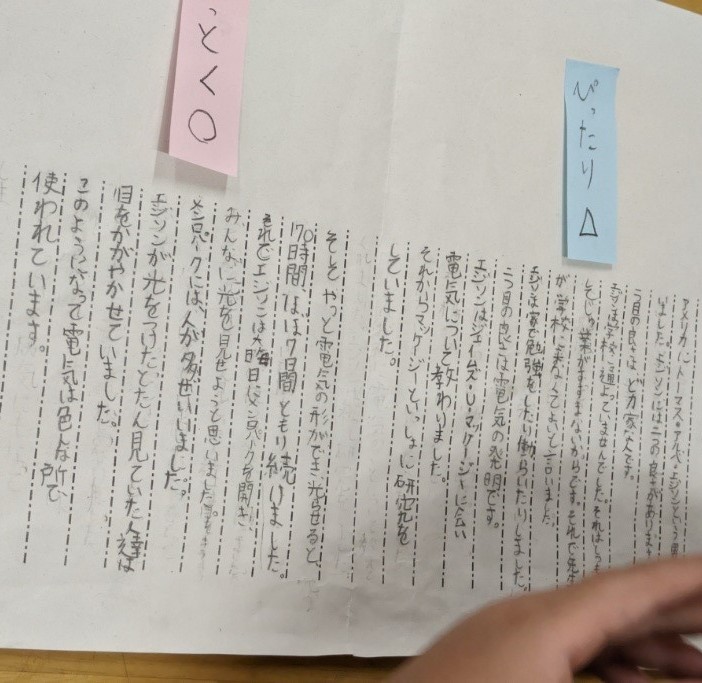 ぴったり△
っとく○
アメリカにトーマス・アルバ・エジソンという男
いました。エジソンには二つの良さがあります
一つ目の良さは、ど力家な人です。
エジソンは学校に通よっていませんでした。それは
じゅ業がすすまないからです。それで先生
が学校に来なくてよいと言いました。
エジソンは家で勉強をしたり働らいたりしました。
二つ目の良さは電気の発明です。
エジソンはジェイムズ・U・マッケンジーに会い
電気について教わりました。
それからマッケンジーといっしょに研究を
していました。
そして やっと電気の形ができ、光らせると、
170時間なは7日間ともり続けました。
それでエジソンは大晦日にメンロパークを開き、
みんなに光を見せようと思いました。
メンロパークには、人が多ぜいいました。
エジソンが光をつけたとたん見ていた人達は
目をかがやかせていました。
このようになって電気は色んな所で
使われています。